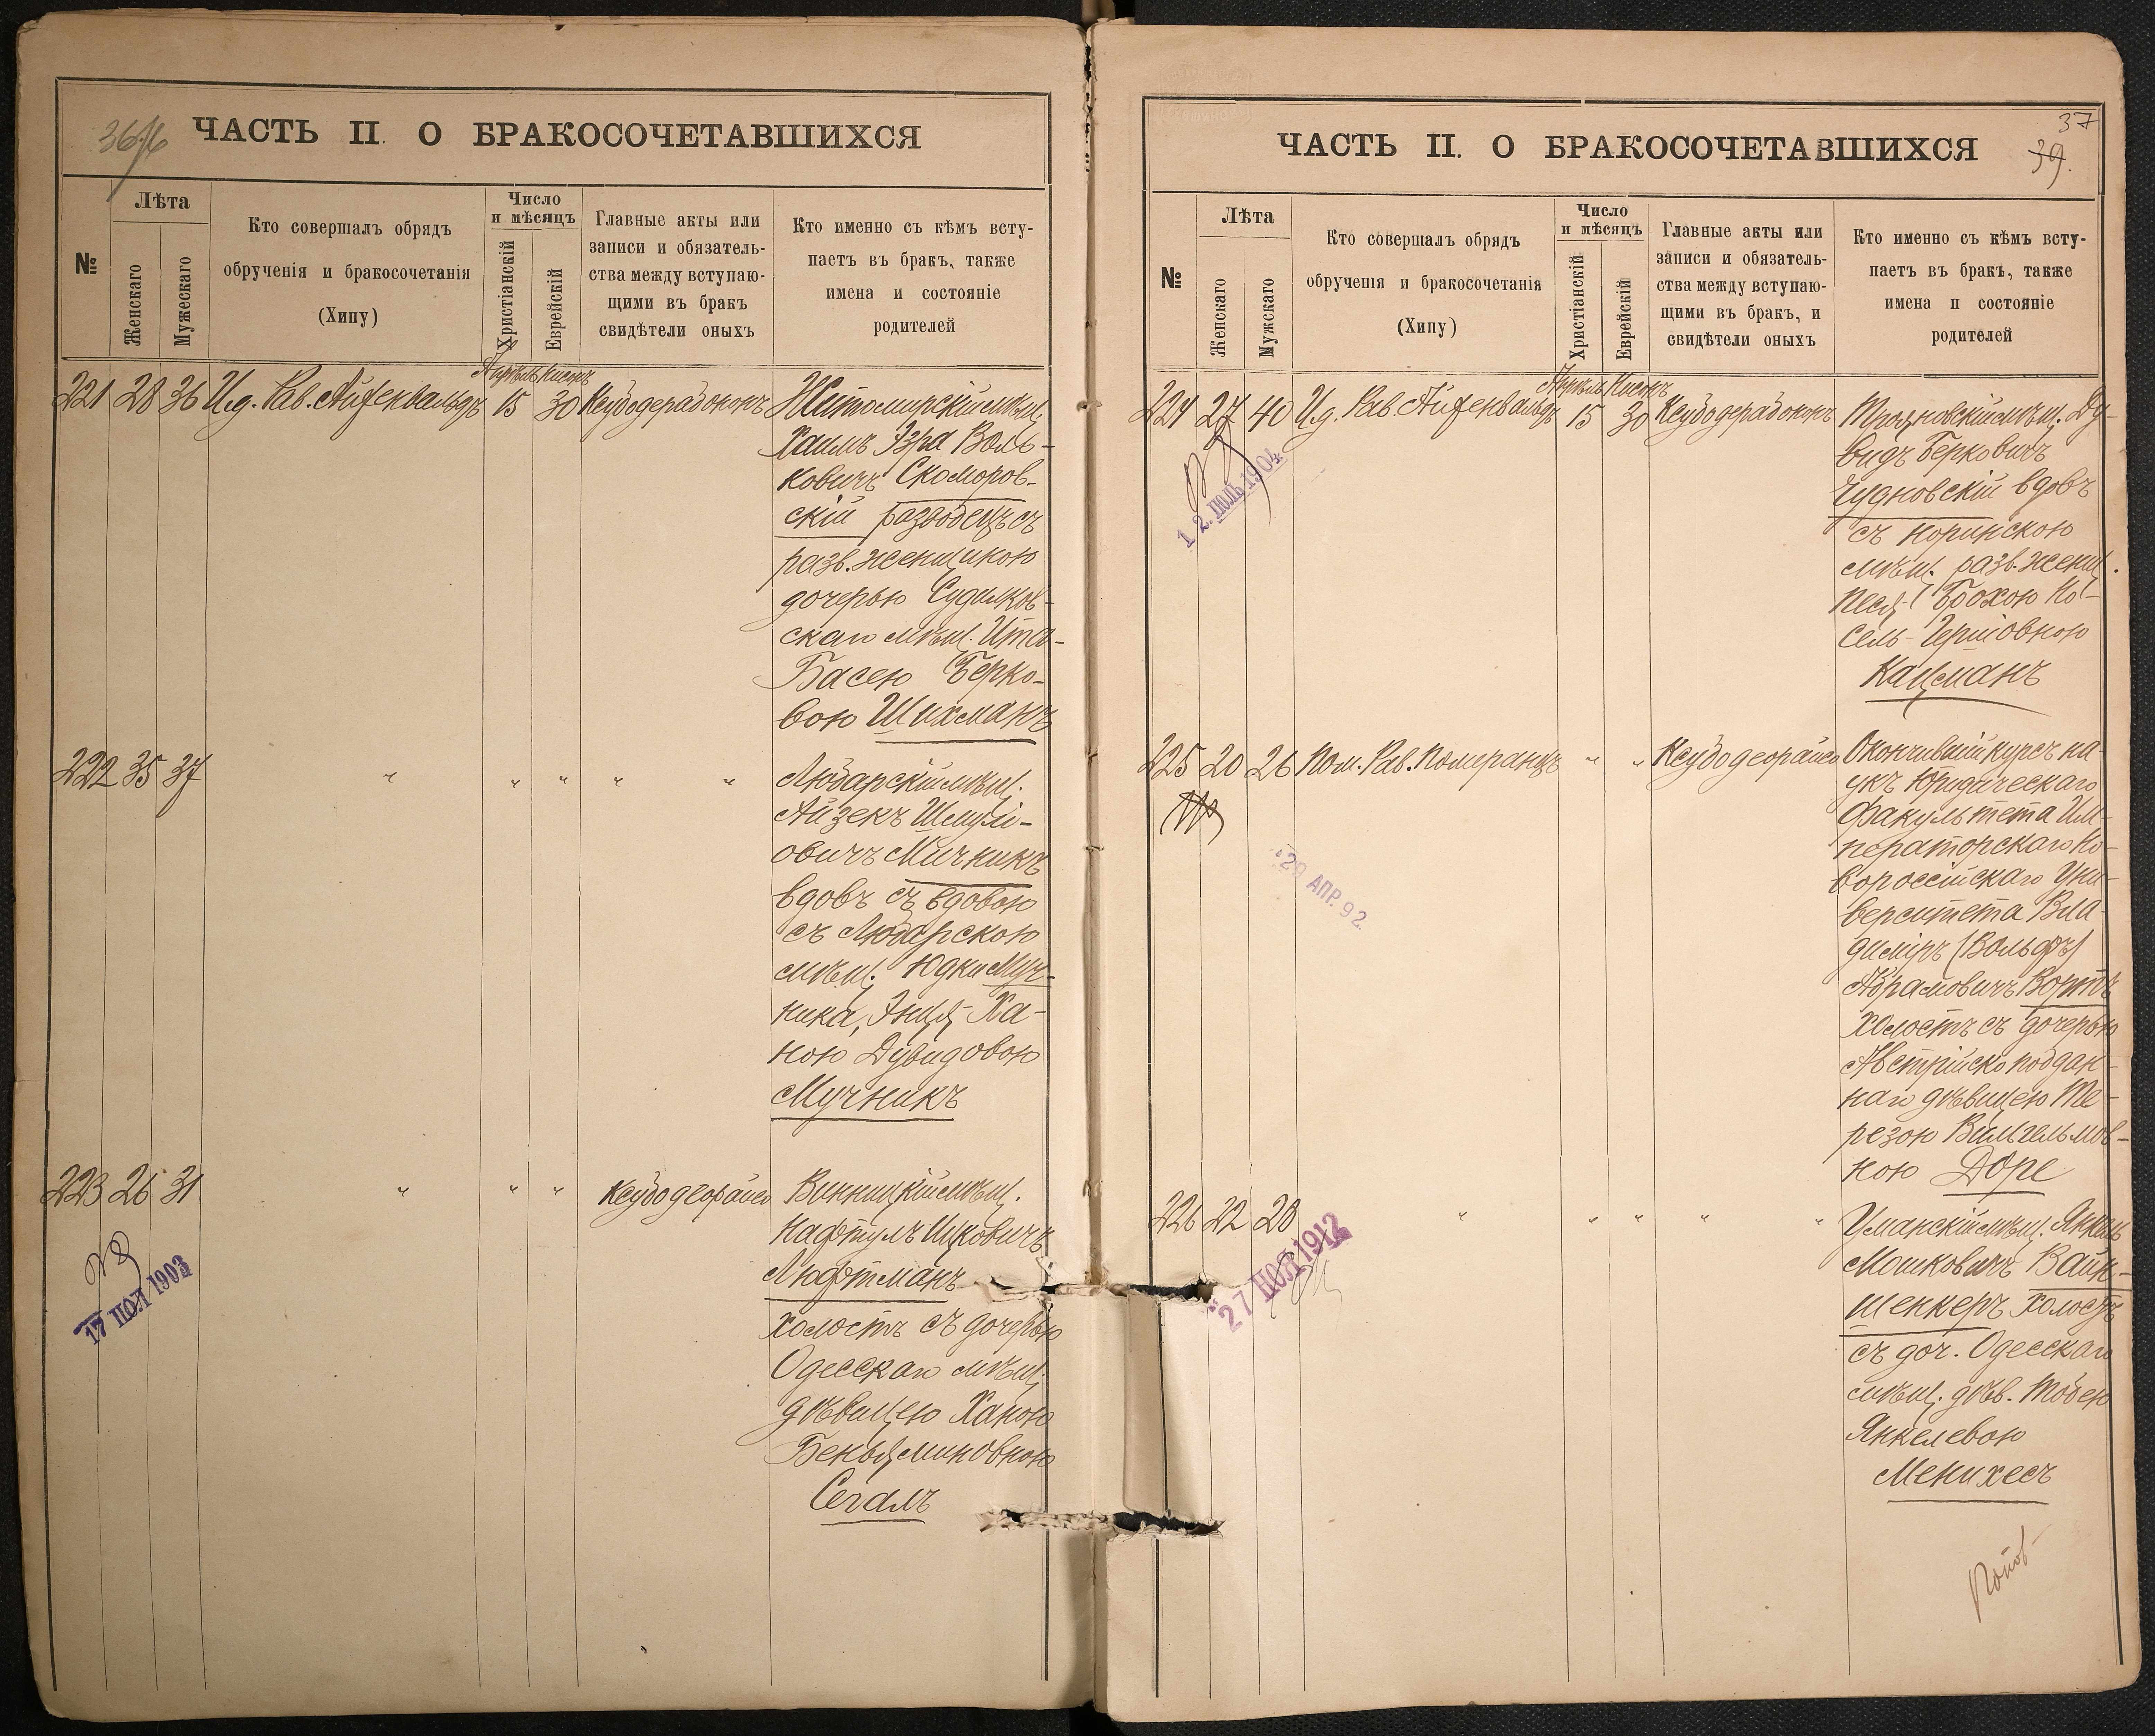 36
ЧАСТЬ II. О БРАКОСОЧЕТАВШИХСЯ
№
Лѣта
Женскаго
Мужескаго
Кто совершалъ обрядъ
обрученія и бракосочетанія
(Хипу)
Число
и мѣсяцъ
Христіанскій
Еврейскій
Главные акты или
записи и обязатель-
ства между вступаю-
щими въ бракъ
свидѣтели оныхъ
Кто именно съ кѣмъ всту-
паетъ въ бракъ, также
имена и состояніе
родителей
Апрѣль Нисонъ
221 28 36 И.д. Рав. Айзенвальдъ 15 30 Ксубодерабононъ Житомирскій мѣщ.
Хаимъ Эзра Воль-
ковичъ Скоморов-
скій разводецъ съ
разв. женщиною
дочерью Судилков-
скаго мѣщ. Ита-
Басею Берко-
вою Шихманъ
222 35 37 " " " " " Любарскій мѣщ.
Айзекъ Шмулі-
овичъ Мучникъ
вдовъ съ вдовою
съ Любарскою
мѣщ. Юдки Муч-
ника, Энця-Ха-
ною Дувидовою
Мучникъ
223 26 31 " " " Ксубодеорайсо Винницкій мѣщ.
Нафтулъ Ицковичъ
Люфтманъ
холостъ съ дочерью
Одесскаго мѣщ.
дѣвицею Ханою
Беньяминовною
Сегалъ
17 ІЮЛ 1903
37
39.
ЧАСТЬ II. О БРАКОСОЧЕТАВШИХСЯ
№
Лѣта
Женскаго
Мужскаго
Кто совершалъ обрядъ
обрученія и бракосочетанія
(Хипу)
Число
и мѣсяцъ
Христіанскій
Еврейскій
Главные акты или
записи и обязатель-
ства между вступаю-
щими въ бракъ, и
свидѣтели оныхъ
Кто именно съ кѣмъ всту-
паетъ въ бракъ, также
имена и состояніе
родителей
Апрѣль Нисонъ
224 27 40 И.д. Рав. Айзенвальдъ 15 30 Ксубодерабононъ Трояновскій мѣщ. Ду-
видъ Берковичъ
Чудновскій вдовъ
съ Норинскою
мѣщ. разв. женщ.
Песя-Брохою Но-
сель-Гершовною
Кацманъ
12 ІЮЛЬ 1904
225 20 26 Пом. Рав. Померанцъ " " Ксубодеорайсо Окончившій курсъ на-
укъ Юридическаго
факультета Им-
ператорскаго Но-
вороссійскаго Уни-
верситета Вла-
диміръ (Вольфъ)
Абрамовичъ Вортъ
холостъ съ дочерью
Австрійско поддан-
наго дѣвицею Те-
резою Вильгельмов-
ною Доре
20 АПР. 92.
226 22 28 " " " " " Уманскій мѣщ. Янкель
Мошковичъ Вайн-
шенкеръ холостъ
съ доч. Одесскаго
мѣщ. дѣв. Тобею
Янкелевою
Менихесъ
27 НОЯ 1912